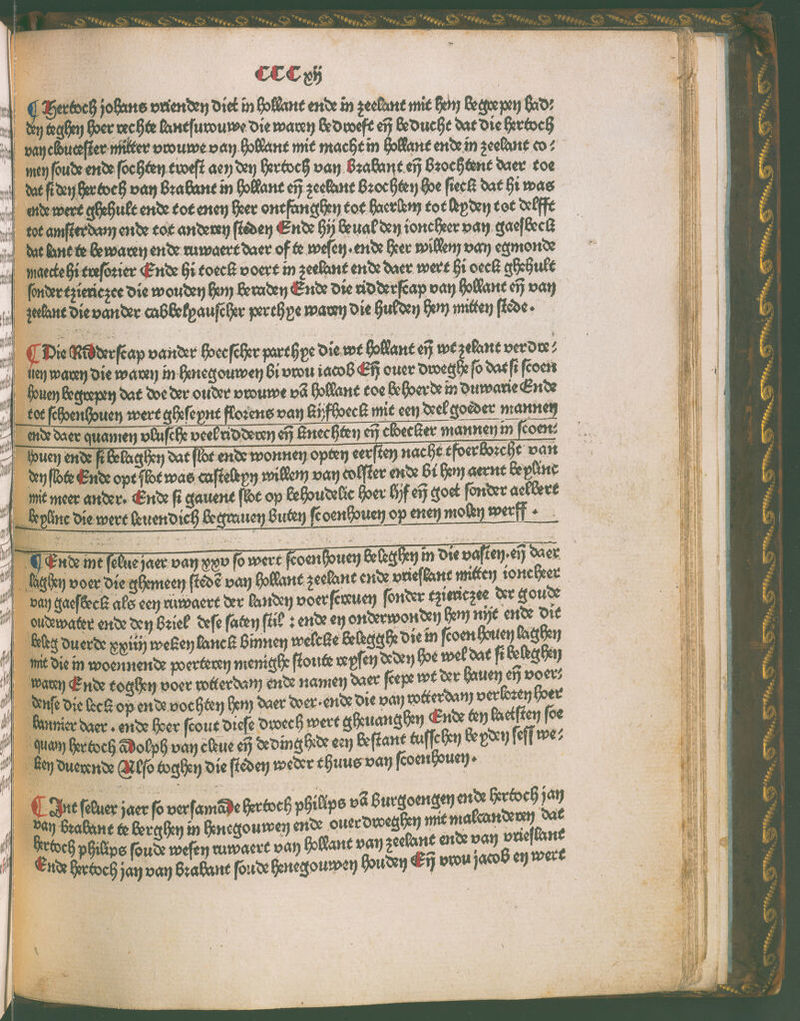 CCC xij
¶ Hertoch johans vrienden diet in hollant ende in zeelant mit hem begrepen had⸗
den teghen hoer rechte lantsvrouwe die waren bedroeft eñ beducht dat die hertoch
van cloucester mitter vrouwe van hollant mit macht in hollant ende in zeelant co⸗
men soude ende sochten troest aen den hertoch van brabant eñ brochtent daer toe
dat si den hertoch van brabant in hollant eñ zeelant brochten hoe sieck dat hi was
ende wert ghehult ende tot enen heer ontfanghen tot haerlem tot leyden tot delfft
tot amsterdam ende tot anderen steden Ende hij beual den ioncheer van gaesbeck
dat lant te bewaren ende ruwaert daer of te wesen. ende heer willem van egmonde
maecte hi tresorier Ende hi toeck voert in zeelant ende daer wert hi oeck ghehult
sonder tziericzee die wouden hem beraden Ende die ridderscap van hollant eñ van
zeelant die vander cabbelyauscher perthye waren die hulden hem mitten stede.
¶ Die Ridderscap vander hoecscher parthye die wt hollant eñ wt zelant verdre⸗
uen waren die waren in henegouwen bi vrou iacob Eñ ouer droeghe so dat si scoen
houen begrepen dat doe der ouder vrouwe vā hollant toe behoerde in duwarie Ende
tot schoenhouen wert ghesepnt florens van kijfhoeck mit een deel goeder mannen
ende daer quamen vlusche veel ridderen eñ knechten eñ cloecker mannen in scoen⸗
houen ende si belaghen dat slot ende wonnen opten eersten nacht tfoerborcht van
den slote Ende opt slot was casteleyn willem van colster ende bi hem aernt beylinc
mit meer ander. Ende si gauent slot op behoudelic hoer lijf eñ goet sonder aelbert
beylinc die wert leuendich begrauen buten scoenhouen op enen molen werff.
¶ Ende int selue jaer van xxv so wert scoenhouen beleghen in die vasten. eñ daer
laghen voer die ghemeen stedē van hollant zeelant ende vrieslant mitten ioncheer
van gaesbeck als een ruwaert der landen voerscreuen sonder tziericzee der goude
oudewater ende den briel dese saten stil : ende en onderwonden hem nijt ende dit
beleg duerde xxiiij weken lanck binnen welcke belegghe die in scoenhouen laghen
mit die in woennende poerteren menighe stoute reysen deden hoe wel dat si beleghen
waren Ende toghen voer rotterdam ende namen daer scepe wt der hauen eñ voer⸗
dense die leck op ende vochten hem daer doer. ende die van rotterdam verloren hoer
bannier daer. ende hoer scout diese droech wert gheuanghen Ende ten laetsten soe
quam hertoch adolph van cleue eñ dedinghede een bestant tusschen beyden sess we⸗
ken duerende Also toghen die steden weder thuus van scoenhouen.
¶ Int seluer jaer so versamāde hertoch philips vā burgoengen ende hertoch jan
van brabant te berghen in henegouwen ende ouerdroeghen mit malcanderen dat
hertoch philips soude wesen ruwaert van hollant van zeelant ende van vrieslant
Ende hertoch jan van brabant soude henegouwen houden Eñ vrou jacob en wert